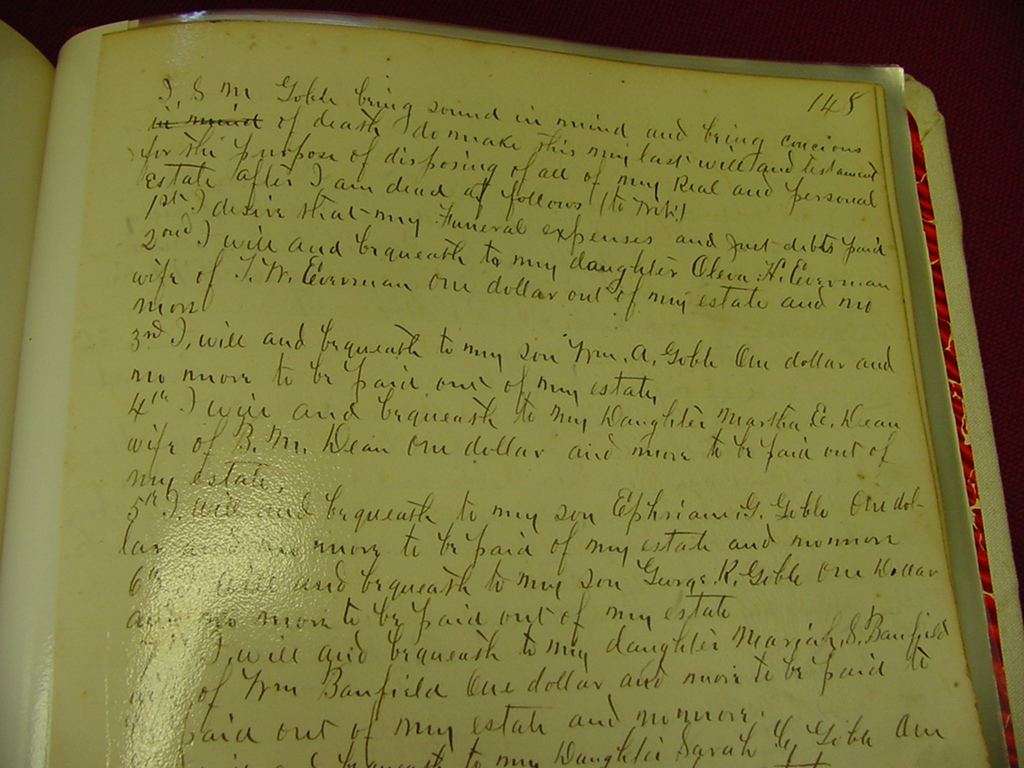 148
I, S M Goble being sound in mind and being concious
in mind of death I do make this my last will and testament
for the purpose of disposing of all of my Real and personal
Estate after I am dead as follows (to Wit!)
1st I desire that my Funeral expenses and Just debts paid
2nd I will and bequeath to my daughter Oleva H. Everman
wife of T. W. Everman One dollar out of my estate and no
more
3rd I, will and bequeath to my son Wm. A. Goble One dollar and
no more to be paid out of my estate,
4th I will and bequeath to my Daughter Martha E. Dean
wife of B. M. Dean One dollar and more to be paid out of
my estate,
5th I, will and bequeath to my son Ephriam G. Goble One dol-
lar and no more to be paid of my estate and nomore
6th I will and bequeath to my son George R. Goble One Dollar
and no more to be paid out of my estate
7th I, will and bequeath to my daughter Mariah S. Banfield
wife of Wm Banfield One dollar and more to be paid to
be paid out of my estate and nomore.
and bequeath to my Daughter Sarah Goble One